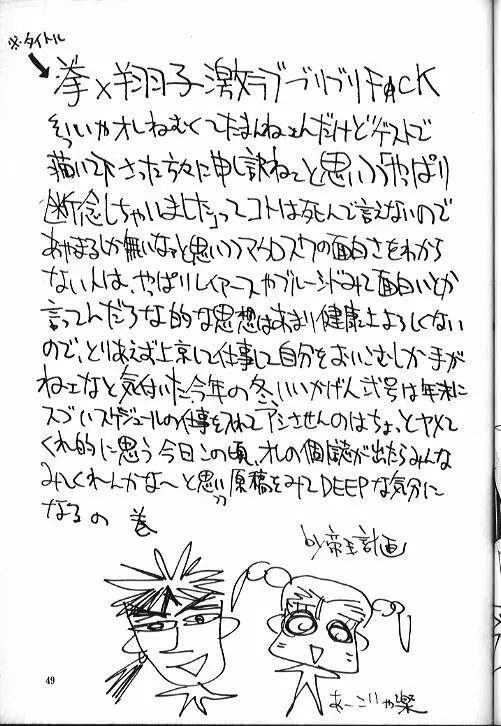 ※タイトル
拳×翔子激ラブブリブリF★CK
そういやオレねむくてたまんねェんだけど"ゲストで
描いて下さった方々に申し訳ねェと思いつつ「やっぱり
断念しちゃいました」ってコトは死んで言えないので
あやまるしか無いなァと思いつつマクロスクの面白さをわから
ない人は、やっぱりレイアースやブルーシードみて面白いとか
言ってんだろな的な思想はあまり健康上よろしくない
ので、とりあえず上京して仕事して自分をおいこむしか手が
ねェなと気付いた今年の冬、いいかげん弐号は年末に
スゴいスケジュールの仕事を入れてアシさせんのはちょっとヤメて
くれ的に思う今日この頃、オレの個人誌が出たらみんな
みてくれーんかな〜と思いつつ原稿をみてDEEPな気分に
なるの巻
by帝王計画
あーこりゃ楽
49